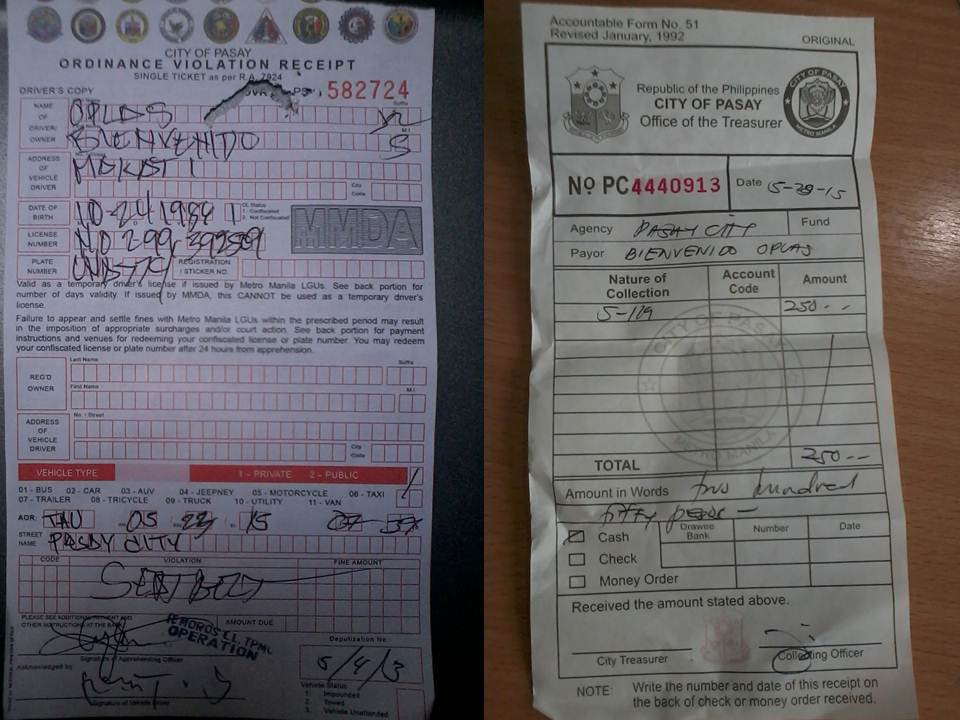 CITY OF PASAY
ORDINANCE VIOLATION RECEIPT
SINGLE TICKET as per R.A. 7924
DRIVER'S COPY
582724
NAME OF DRIVER/ OWNER
Suffix
OPLAS
BIENVENIDO
M.I.
S
ADDRESS OF VEHICLE DRIVER
MAKATI
City Code
DATE OF BIRTH
10-24 198
DL Status
1. Confiscated
2. Not Confiscated
MMDA
LICENSE NUMBER
PLATE NUMBER
REGISTRATION / STICKER NO.
Valid as a temporary driver's license if issued by Metro Manila LGUs. See back portion for
number of days validity. If issued by MMDA, this CANNOT be used as a temporary driver's
license.
Failure to appear and settle fines with Metro Manila LGUs within the prescribed period may result
in the imposition of appropriate surcharges and/or court action. See back portion for payment
instructions and venues for redeeming your confiscated license or plate number. You may redeem
your confiscated license or plate number after 24 hours from apprehension.
REG'D OWNER
Last Name
Suffix
First Name
M.I.
ADDRESS OF VEHICLE DRIVER
No. / Street
City Code
VEHICLE TYPE
1 - PRIVATE 2 - PUBLIC
01 - BUS 02 - CAR 03 - AUV 04 - JEEPNEY 05 - MOTORCYCLE 06 - TAXI
07 - TRAILER 08 - TRICYCLE 09 - TRUCK 10 - UTILITY 11 - VAN
AOR:
05
15
STREET NAME
PASAY CITY
CODE
VIOLATION
FINE AMOUNT
SEAT BELT
PLEASE SEE ADDITIONAL PAYMENT AND
OTHER INSTRUCTIONS AT THE BACK
AMOUNT DUE
OPERATION
Signature of Apprehending Officer
Deputization No.
5/4/3
Acknowledged by
Signature of Vehicle Driver
Vehicle Status
1. Impounded
2. Towed
3. Vehicle Unattended
Accountable Form No. 51
Revised January, 1992
ORIGINAL
Republic of the Philippines
CITY OF PASAY
Office of the Treasurer
CITY OF PASAY
METRO MANILA
No PC4440913
Date 5-29-15
Agency PASAY CITY
Fund
Payor BIENVENIDO OPLAS
Nature of Collection
Account Code
Amount
250 --
CITY OF PASAY
METRO MANILA
TOTAL
250 --
Amount in Words two hundred
fifty pesos
Cash
Drawee Bank
Number
Date
Check
Money Order
Received the amount stated above.
City Treasurer
Collecting Officer
NOTE: Write the number and date of this receipt on
the back of check or money order received.